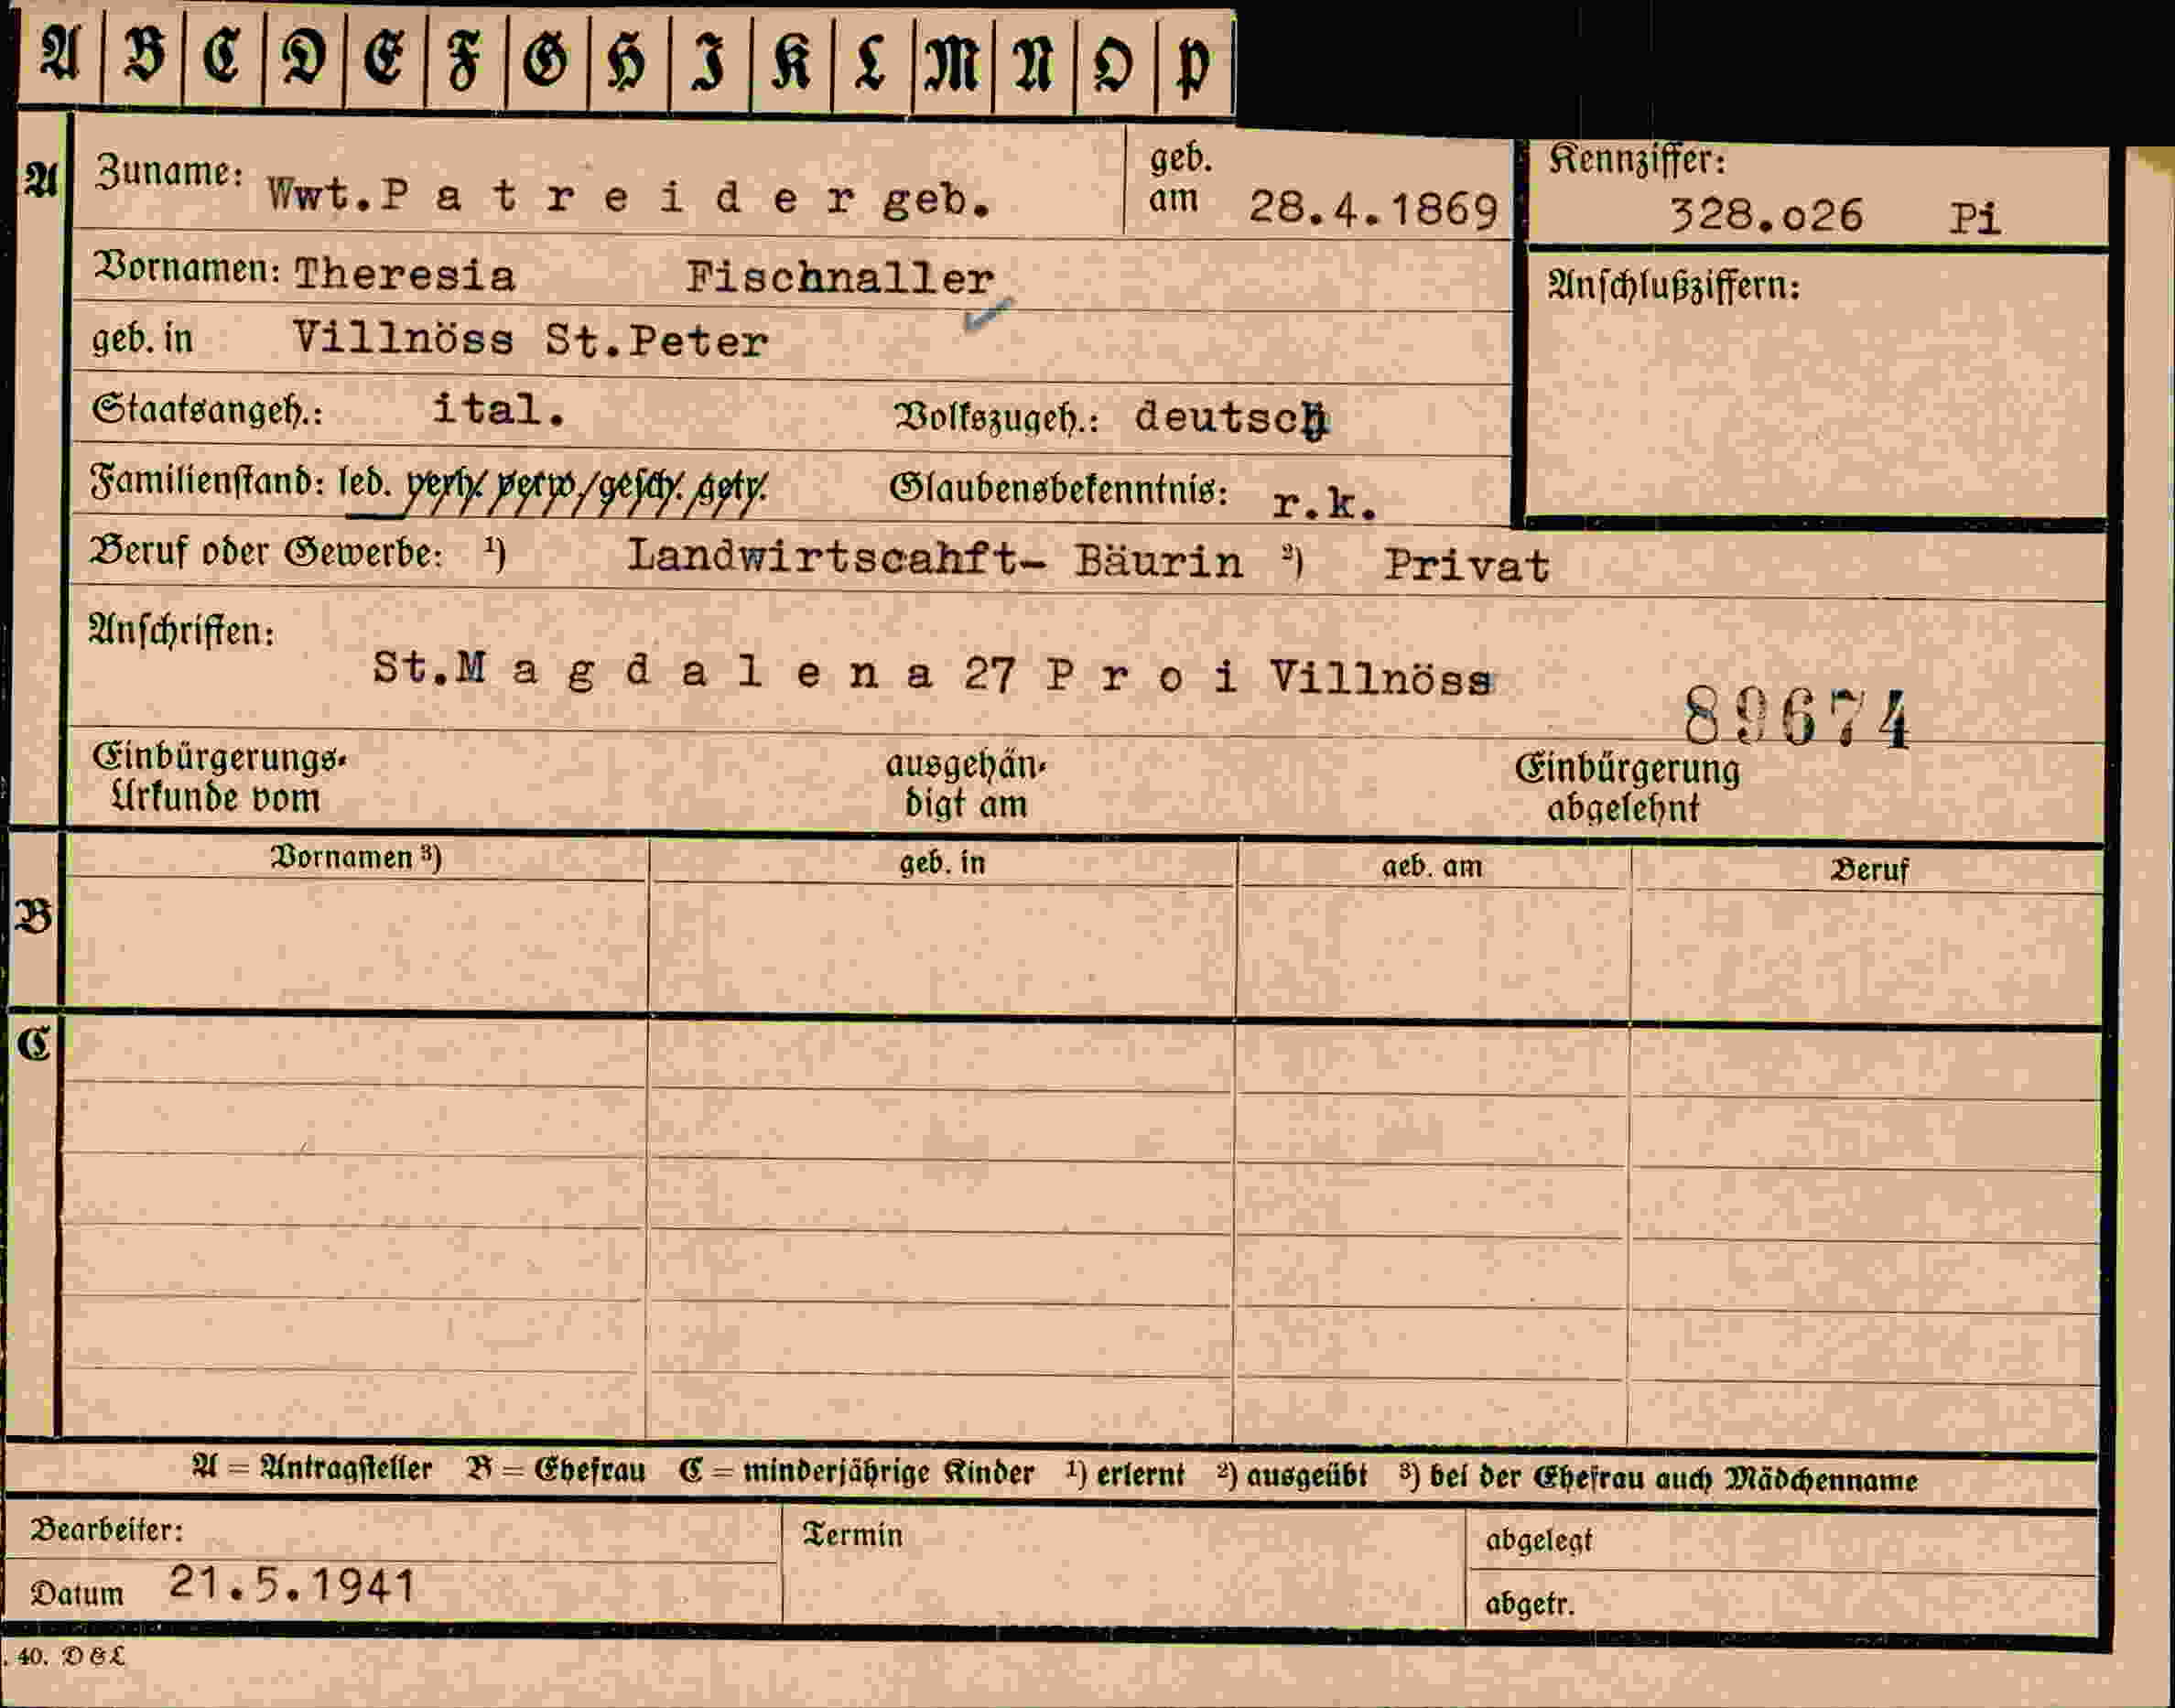 A B C D E F G H I K L M N O P
A
Zuname: Wwt.P a t r e i d e r geb.
geb. am 28.4.1869
Kennziffer:
328.o26 Pi
Vornamen: Theresia Fischnaller
Anschlußziffern:
geb. in Villnöss St.Peter
Staatsangeh.: ital. Volkszugeh.: deutsch
Familienstand: led. verh. verw. gesch. getr. Glaubensbekenntnis: r.k.
Beruf oder Gewerbe: ¹) Landwirtscahft- Bäurin ²) Privat
Anschriften:
St.M a g d a l e n a 27 P r o i Villnöss
89674
Einbürgerungs-
Urkunde vom
ausgehän-
digt am
Einbürgerung
abgelehnt
B
Vornamen ³) geb. in geb. am Beruf
C
A = Antragsteller B = Ehefrau C = minderjährige Kinder ¹) erlernt ²) ausgeübt ³) bei der Ehefrau auch Mädchenname
Bearbeiter:
Termin
abgelegt
Datum 21.5.1941
abgetr.
. 40. D & L